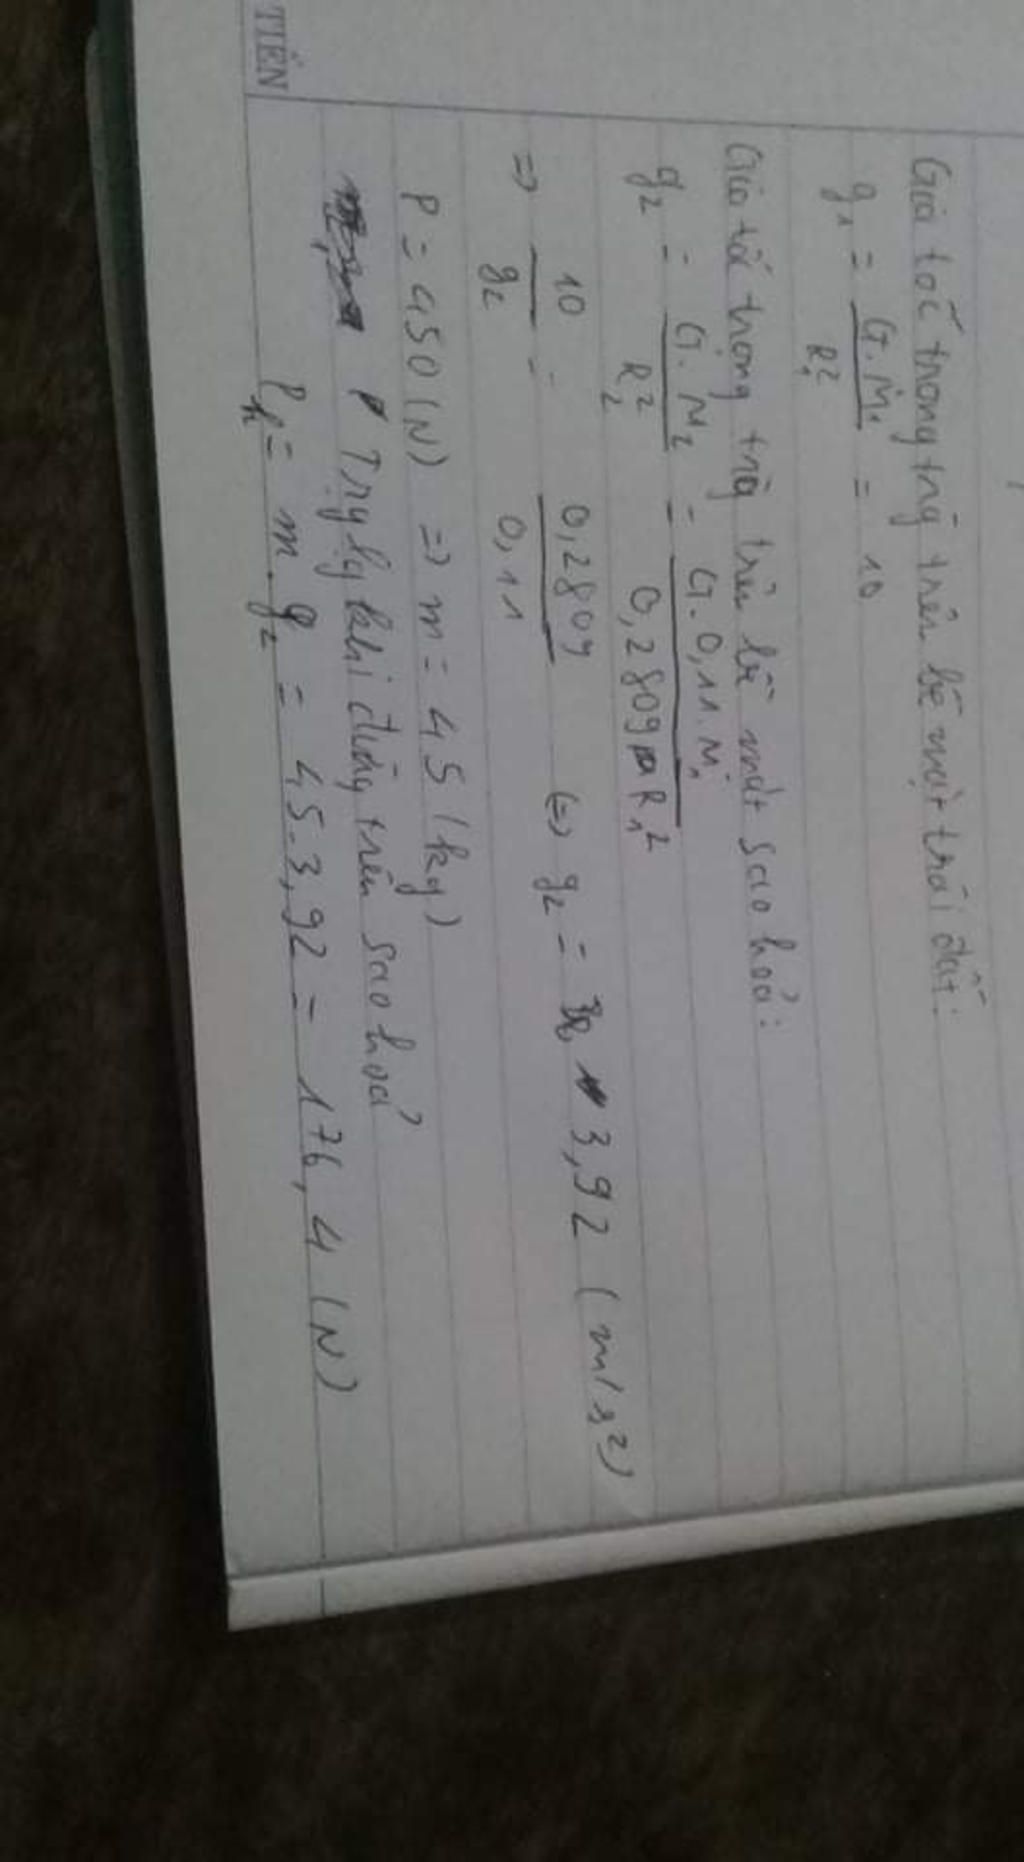 Gia tốc trong trg trên bề mặt trái đất:
g₁ = G.M₁ / R₁² = 10
Gia tốc trong trg trên bề mặt sao hoả:
g₂ = G.M₂ / R₂² = G.0,11.M₁ / 0,2809 R₁²
=> 10 / g₂ = 0,2809 / 0,11 (=) g₂ = 3,92 (m/s²)
P = 450 (N) => m = 45 (kg)
Trg lg khi đứng trên sao hoả
Pₕ = m.g₂ = 45.3,92 = 176,4 (N)
TIẾN